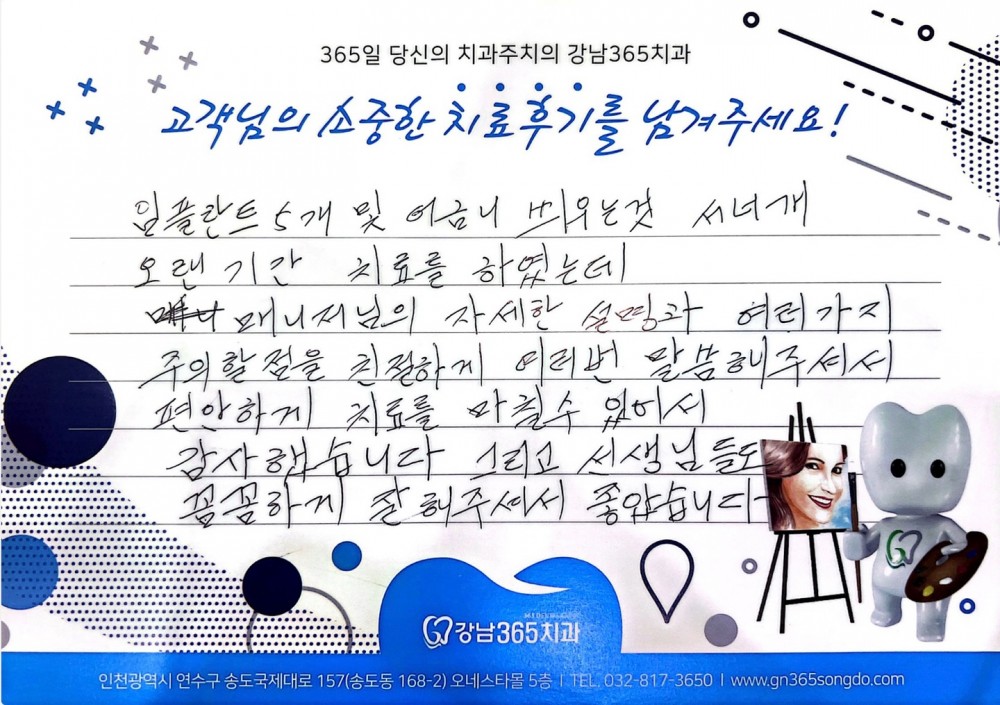 365일 당신의 치과주치의 강남365치과
고객님의 소중한 치료후기를 남겨주세요!
임플란트 5개 및 어금니 띄우는것 서너개
오랜 기간 치료를 하였는데
매니저님의 자세한 설명과 여러가지
주의할 점을 친절하게 여러번 말씀해주셔서
편안하게 치료를 마칠수 있어서
감사했습니다 그리고 선생님들도
꼼꼼하게 잘 해주셔서 좋았습니다
강남365치과
인천광역시 연수구 송도국제대로 157(송도동 168-2) 오네스타몰 5층 | TEL. 032-817-3650 | www.gn365songdo.com